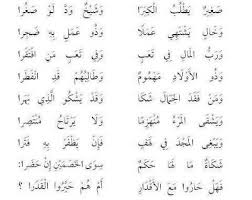 صَغِيرٌ يَطْلُبُ الْكِبَرَا وَشَيْخٌ وَدَّ لَوْ صَغُرَا
وَخَالٍ يَشْتَهِي عَمَلًا وَذُو عَمَلٍ بِهِ ضَجِرَا
وَرَبُّ الْمَالِ فِي تَعَبٍ وَفِي تَعَبٍ مَنِ افْتَقَرَا
وَذُو الْأَوْلَادِ مَهْمُومٌ وَطَالِبُهُمْ قَدِ انْفَطَرَا
وَمَنْ فَقَدَ الْجَمَالَ شَكَا وَقَدْ يَشْكُو الَّذِي بَهَرَا
وَيَشْقَى الْمَرْءُ مُنْهَزِمًا وَلَا يَرْتَاحُ مُنْتَصِرَا
وَيَبْغِي الْمَجْدَ فِي لَهَفٍ فَإِنْ يَظْفَرْ بِهِ فَتَرَا
شَكَاةٌ مَا لَهَا حَكَمٌ سِوَى الْخَصْمَيْنِ إِنْ حَضَرَا:
فَهَلْ حَارُوا مَعَ الْأَقْدَارِ أَمْ هُمْ حَيَّرُوا الْقَدَرَا ؟